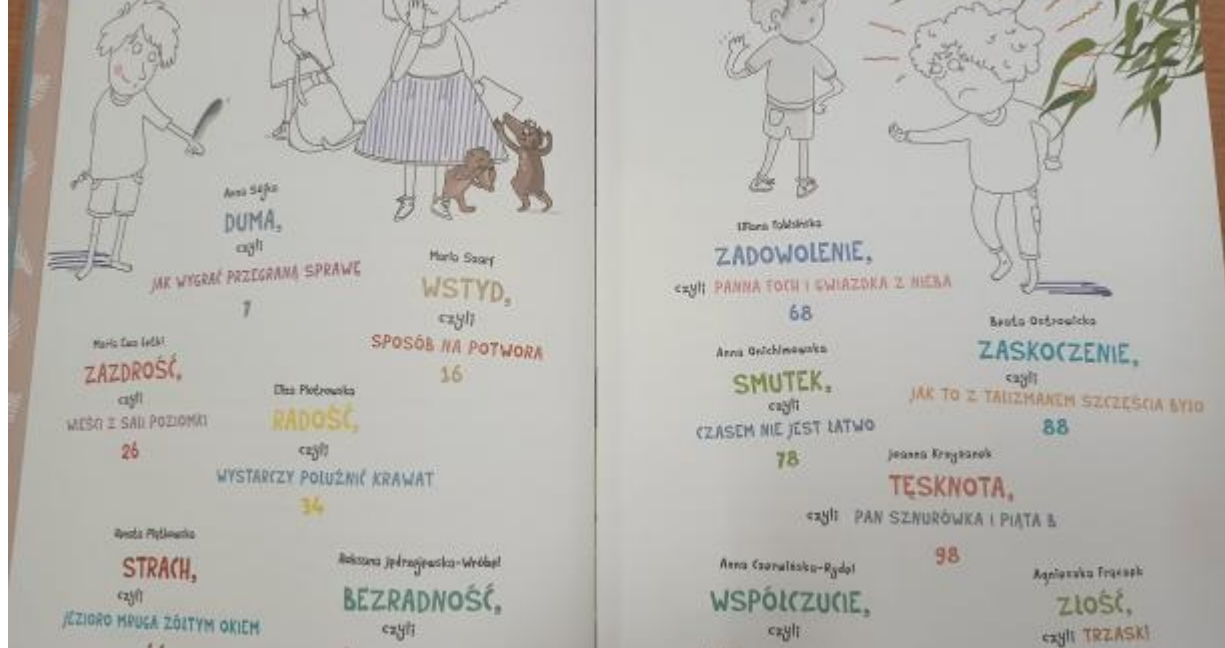 Anna Sójka
DUMA,
czyli
JAK WYGRAĆ PRZEGRANĄ SPRAWĘ
7
Maria Szarf
WSTYD,
czyli
SPOSÓB NA POTWORA
16
Maria Ewa Letki
ZAZDROŚĆ,
czyli
WIEŚCI Z SALI POZIOMKI
26
Eliza Piotrowska
RADOŚĆ,
czyli
WYSTARCZY POLUŹNIĆ KRAWAT
34
Renata Piątkowska
STRACH,
czyli
JEZIORO MRUGA ŻÓŁTYM OKIEM
Roksana Jędrzejewska-Wróbel
BEZRADNOŚĆ,
czyli
Liliana Fabisińska
ZADOWOLENIE,
czyli PANNA FOCH I GWIAZDKA Z NIEBA
68
Beata Ostrowicka
ZASKOCZENIE,
czyli
JAK TO Z TALIZMANEM SZCZĘŚCIA BYŁO
88
Anna Onichimowska
SMUTEK,
czyli
CZASEM NIE JEST ŁATWO
78
Joanna Krzyżanek
TĘSKNOTA,
czyli PAN SZNURÓWKA I PIĄTA B
98
Anna Czerwińska-Rydel
WSPÓŁCZUCIE,
czyli
Agnieszka Frączek
ZŁOŚĆ,
czyli TRZASK!